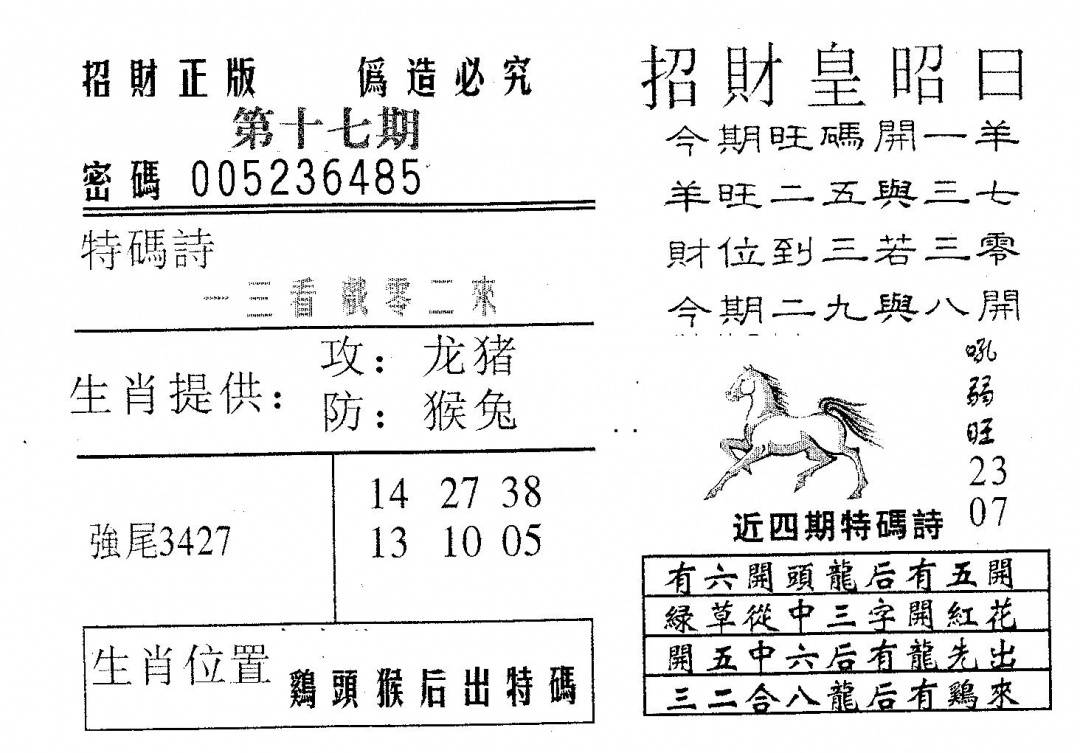 招財正版 僞造必究
第十七期
密碼 005236485
特碼詩
一三看戲零二來
生肖提供：
攻：龙猪
防：猴兔
強尾3427
14 27 38
13 10 05
生肖位置 鷄頭猴后出特碼
招財皇昭日
今期旺碼開一羊
羊旺二五與三七
財位到三若三零
今期二九與八開
吼
弱
旺
23
07
近四期特碼詩
有六開頭龍后有五開
緑草從中三字開紅花
開五中六后有龍先出
三二合八龍后有鷄來